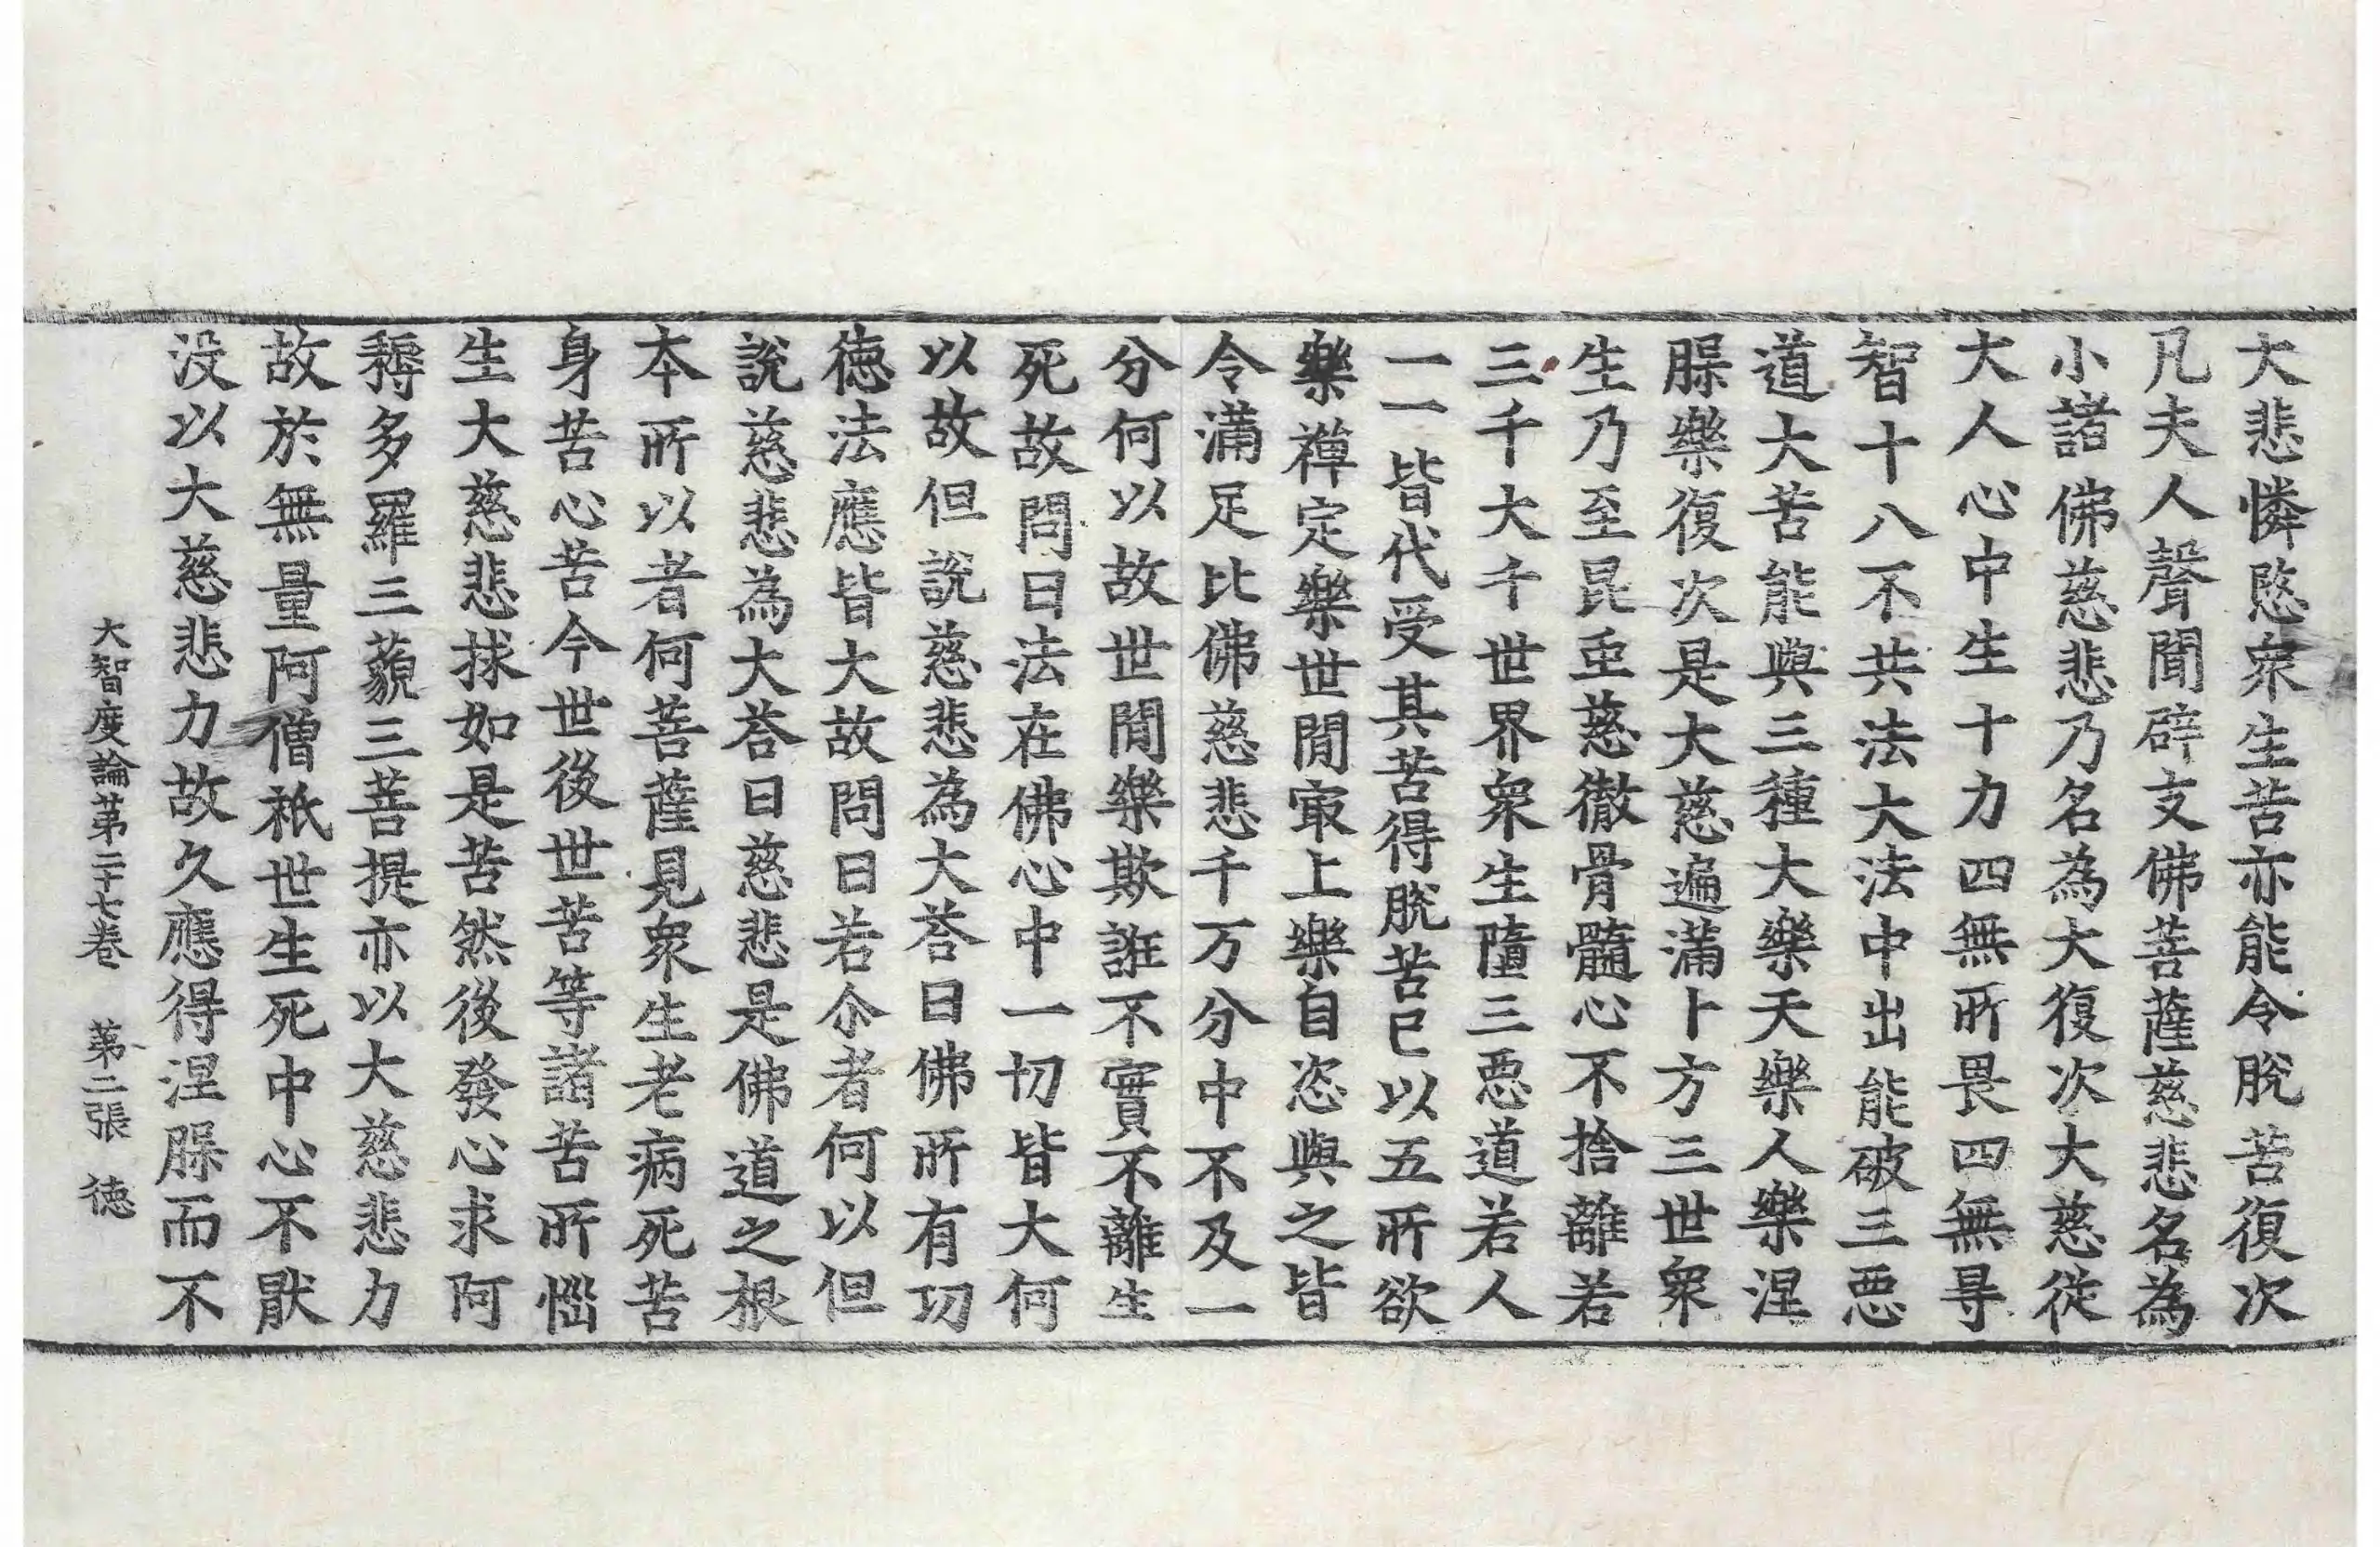 大悲憐愍衆生苦亦能令脫苦復次
凡夫人聲聞辟支佛菩薩慈悲名為
小諸佛慈悲乃名為大復次大慈従
大人心中生十力四無所畏四無㝵
智十八不共法大法中出能破三悪
道大苦能與三種大樂天樂人樂涅
𦙁樂復次是大慈遍滿卜方三世衆
生乃至昆虫慈徹骨髓心不捨離若
三千大千世界衆生墮三悪道若人
一一皆代受其苦得脫苦已以五所欲
樂禪定樂世間㝡上樂自恣與之皆
令滿足比佛慈悲千万分中不及一
分何以故世間樂欺誑不實不離生
死故問曰法在佛心中一切皆大何
以故但說慈悲為大荅曰佛所有功
徳法應皆大故問曰若尒者何以但
說慈悲為大荅曰慈悲是佛道之根
本所以者何菩薩見衆生老病死苦
身苦心苦今世後世苦等諸苦所惱
生大慈悲捄如是苦然後發心求阿
耨多羅三藐三菩提亦以大慈悲力
故於無量阿僧祇世生死中心不猒
没以大慈悲力故久應得涅𦙁而不
大智度論苐二十七卷　苐二張　徳